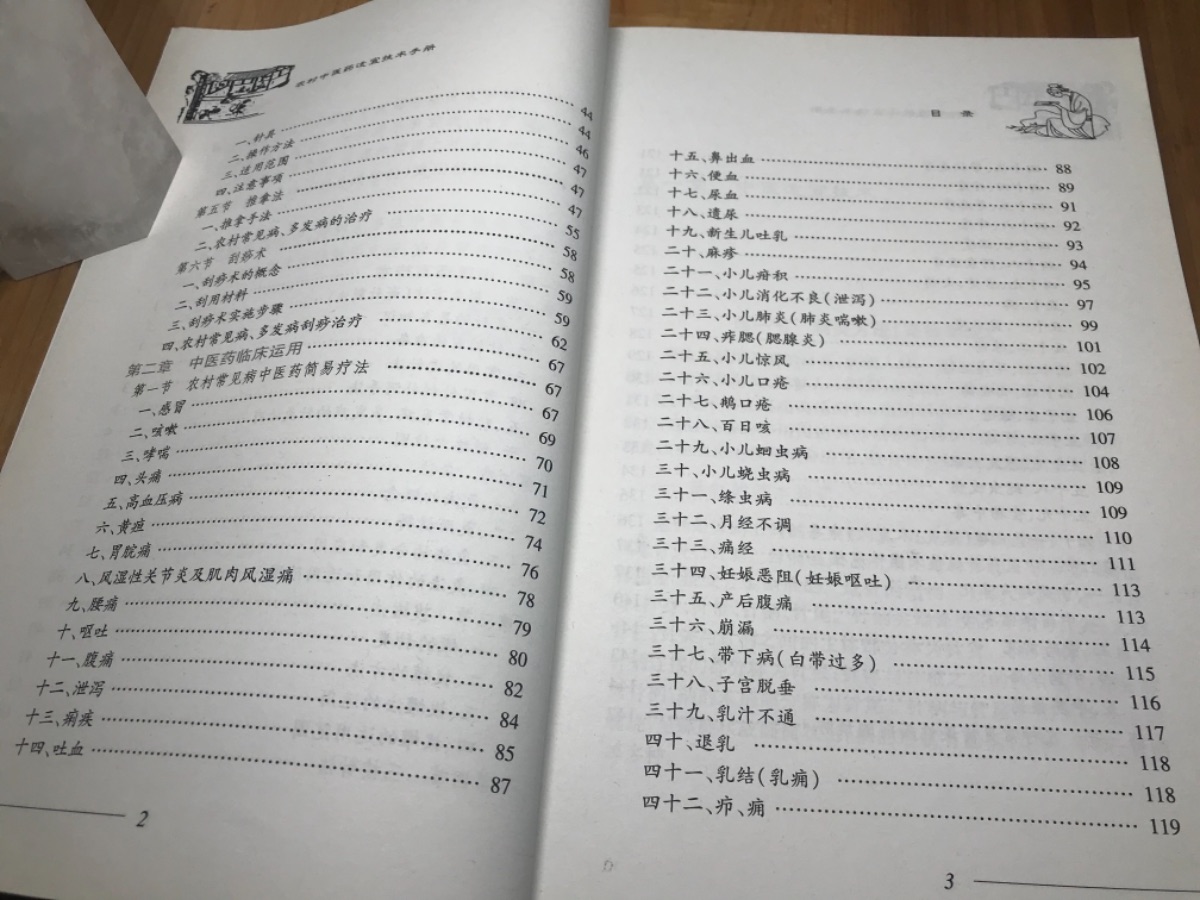 农村中医药适宜技术手册
一、针具 …… 44
二、操作方法 …… 44
三、适用范围 …… 46
四、注意事项 …… 47
第五节 推拿法 …… 47
一、推拿手法 …… 47
二、农村常见病、多发病的治疗 …… 55
第六节 刮痧术 …… 58
一、刮痧术的概念 …… 58
二、刮用材料 …… 59
三、刮痧术实施步骤 …… 59
四、农村常见病、多发病刮痧治疗 …… 62
第二章 中医药临床运用 …… 67
第一节 农村常见病中医药简易疗法 …… 67
一、感冒 …… 67
二、咳嗽 …… 69
三、哮喘 …… 70
四、头痛 …… 71
五、高血压病 …… 72
六、黄疸 …… 74
七、胃脘痛 …… 76
八、风湿性关节炎及肌肉风湿痛 …… 78
九、腰痛 …… 79
十、呕吐 …… 80
十一、腹痛 …… 82
十二、泄泻 …… 84
十三、痢疾 …… 85
十四、吐血 …… 87
2
目 录
十五、鼻出血 …… 88
十六、便血 …… 89
十七、尿血 …… 91
十八、遗尿 …… 92
十九、新生儿吐乳 …… 93
二十、麻疹 …… 94
二十一、小儿疳积 …… 95
二十二、小儿消化不良(泄泻) …… 97
二十三、小儿肺炎(肺炎喘嗽) …… 99
二十四、痄腮(腮腺炎) …… 101
二十五、小儿惊风 …… 102
二十六、小儿口疮 …… 104
二十七、鹅口疮 …… 106
二十八、百日咳 …… 107
二十九、小儿蛔虫病 …… 108
三十、小儿蛲虫病 …… 109
三十一、绦虫病 …… 109
三十二、月经不调 …… 110
三十三、痛经 …… 111
三十四、妊娠恶阻(妊娠呕吐) …… 113
三十五、产后腹痛 …… 113
三十六、崩漏 …… 114
三十七、带下病(白带过多) …… 115
三十八、子宫脱垂 …… 116
三十九、乳汁不通 …… 117
四十、退乳 …… 118
四十一、乳结(乳痈) …… 118
四十二、疖、痈 …… 119
3